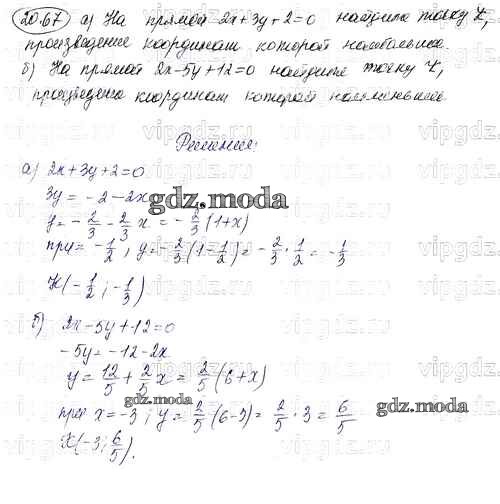 20.67 а) На прямой 2x+3y+2=0 найдите точку K,
произведение координат которой наибольшее.
б) На прямой 2x-5y+12=0 найдите точку K,
произведение координат которой наименьшее.
Решение:
а) 2x+3y+2=0
3y=-2-2x
gdz.moda
y=-2/3-2/3x=-2/3(1+x)
при=-1/2, y=-2/3(1-1/2)=-2/3·1/2=-1/3
K(-1/2;-1/3)
б) 2x-5y+12=0
-5y=-12-2x
y=12/5+2/5x=2/5(6+x)
gdz.moda
при x=-3; y=2/5(6-3)=2/5·3=6/5
gdz.moda
K(-3;6/5).